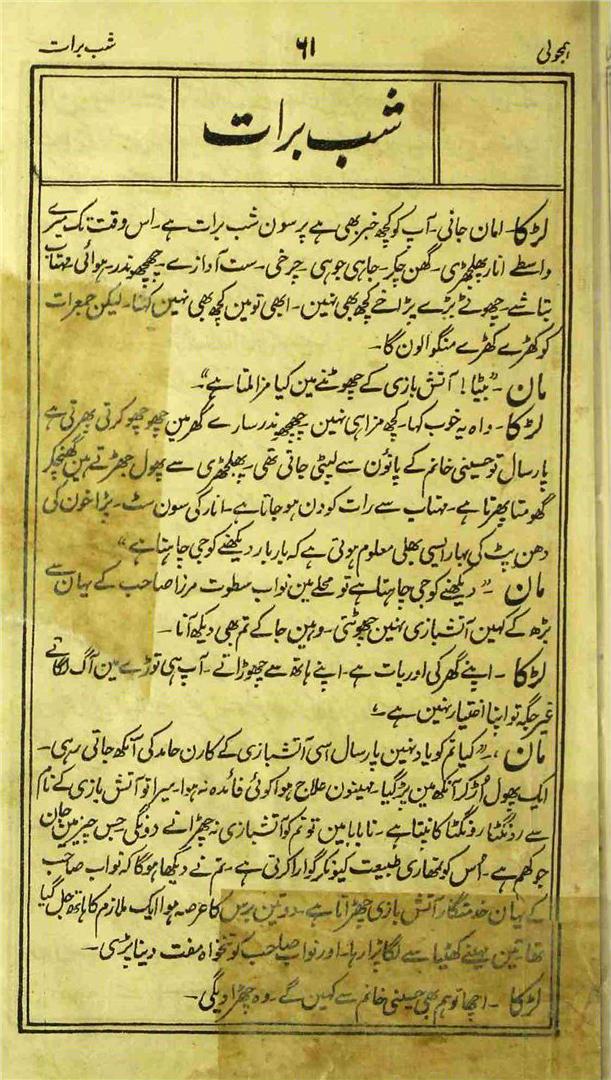 ہمجولی ۶۱ شب برات
شب برات
لڑکا۔ امان جانی۔ آپ کو کچھ خبر بھی ہے پرسون شب برات ہے۔ اس وقت تک میرے
واسطے انار پھلجھڑی۔ گھن چکر۔ جاہی جوہی۔ چرخی۔ ست آوازے۔ چھچھوندر۔ ہوائی۔ مہتاب
بتاشے۔ چھوٹے بڑے پڑاخے کچھ بھی نہین۔ ابھی تو مین کچھ بھی نہین کہتا۔ لیکن جمعرات
کو کھڑے کھڑے منگوا لون گا۔
مان۔ “بیٹا! آتش بازی کے چھوٹنے مین کیا مزا ملتا ہے”۔
لڑکا۔ واہ یہ خوب کہا۔ کچھ مزا ہی نہین۔ چھچھوندر سارے گھر مین چھو چھو کرتی پھرتی ہے
پارسال تو حسینی خانم کے پاؤن سے لپٹی جاتی تھی۔ پھلجھڑی سے پھول جھڑتے ہین گھنچکر
گھومتا پھرتا ہے۔ مہتاب سے رات کو دن ہو جاتا ہے۔ انار کی سون سٹ۔ پڑاخون کی
دھن پٹ کی بہار ایسی بھلی معلوم ہوتی ہے کہ بار بار دیکھنے کو جی چاہتا ہے”
مان۔ “دیکھنے کو جی چاہتا ہے تو محلے مین نواب سطوت مرزا صاحب کے یہان سے
بڑھ کے کہین آتشبازی نہین چھوٹتی۔ وہین جا کے تم بھی دیکھ آنا۔
لڑکا۔ اپنے گھر کی اور بات ہے۔ اپنے ہاتھ سے چھوڑاتے۔ آپ ہی توڑے مین آگ لگاتے
غیر جگہ تو اپنا اختیار نہین ہے۔”
مان۔ “کیا تم کو یاد نہین پارسال اسی آتشبازی کے کارن حامد کی آنکھ جاتی رہی۔
ایک پھول اُڑ کر آنکھ مین پڑ گیا۔ مہینون علاج ہوا کوئی فائدہ نہ ہوا۔ میرا تو آتش بازی کے نام
سے رونگٹا رونگٹا کانپتا ہے۔ نا بابا مین تو تم کو آتشبازی نہ چھڑانے دونگی۔ جس چیز مین جان
جوکھم ہے۔ اُس کو تمھاری طبیعت کیونکر گوارا کرتی ہے۔ تم نے دیکھا ہوگا کہ نواب صاحب
کے یہان خدمتگار آتش بازی چھڑاتا ہے۔ دو تین برس کا عرصہ ہوا ایک ملازم کا ہاتھ جل گیا
تھا تین مہینے کھٹیا سے لگا پڑا رہا۔ اور نواب صاحب کو تنخواہ مفت دینا پڑی۔
لڑکا۔ اچھا تو ہم بھی حسینی خانم سے کہین گے۔ وہ چھڑا دیگی۔